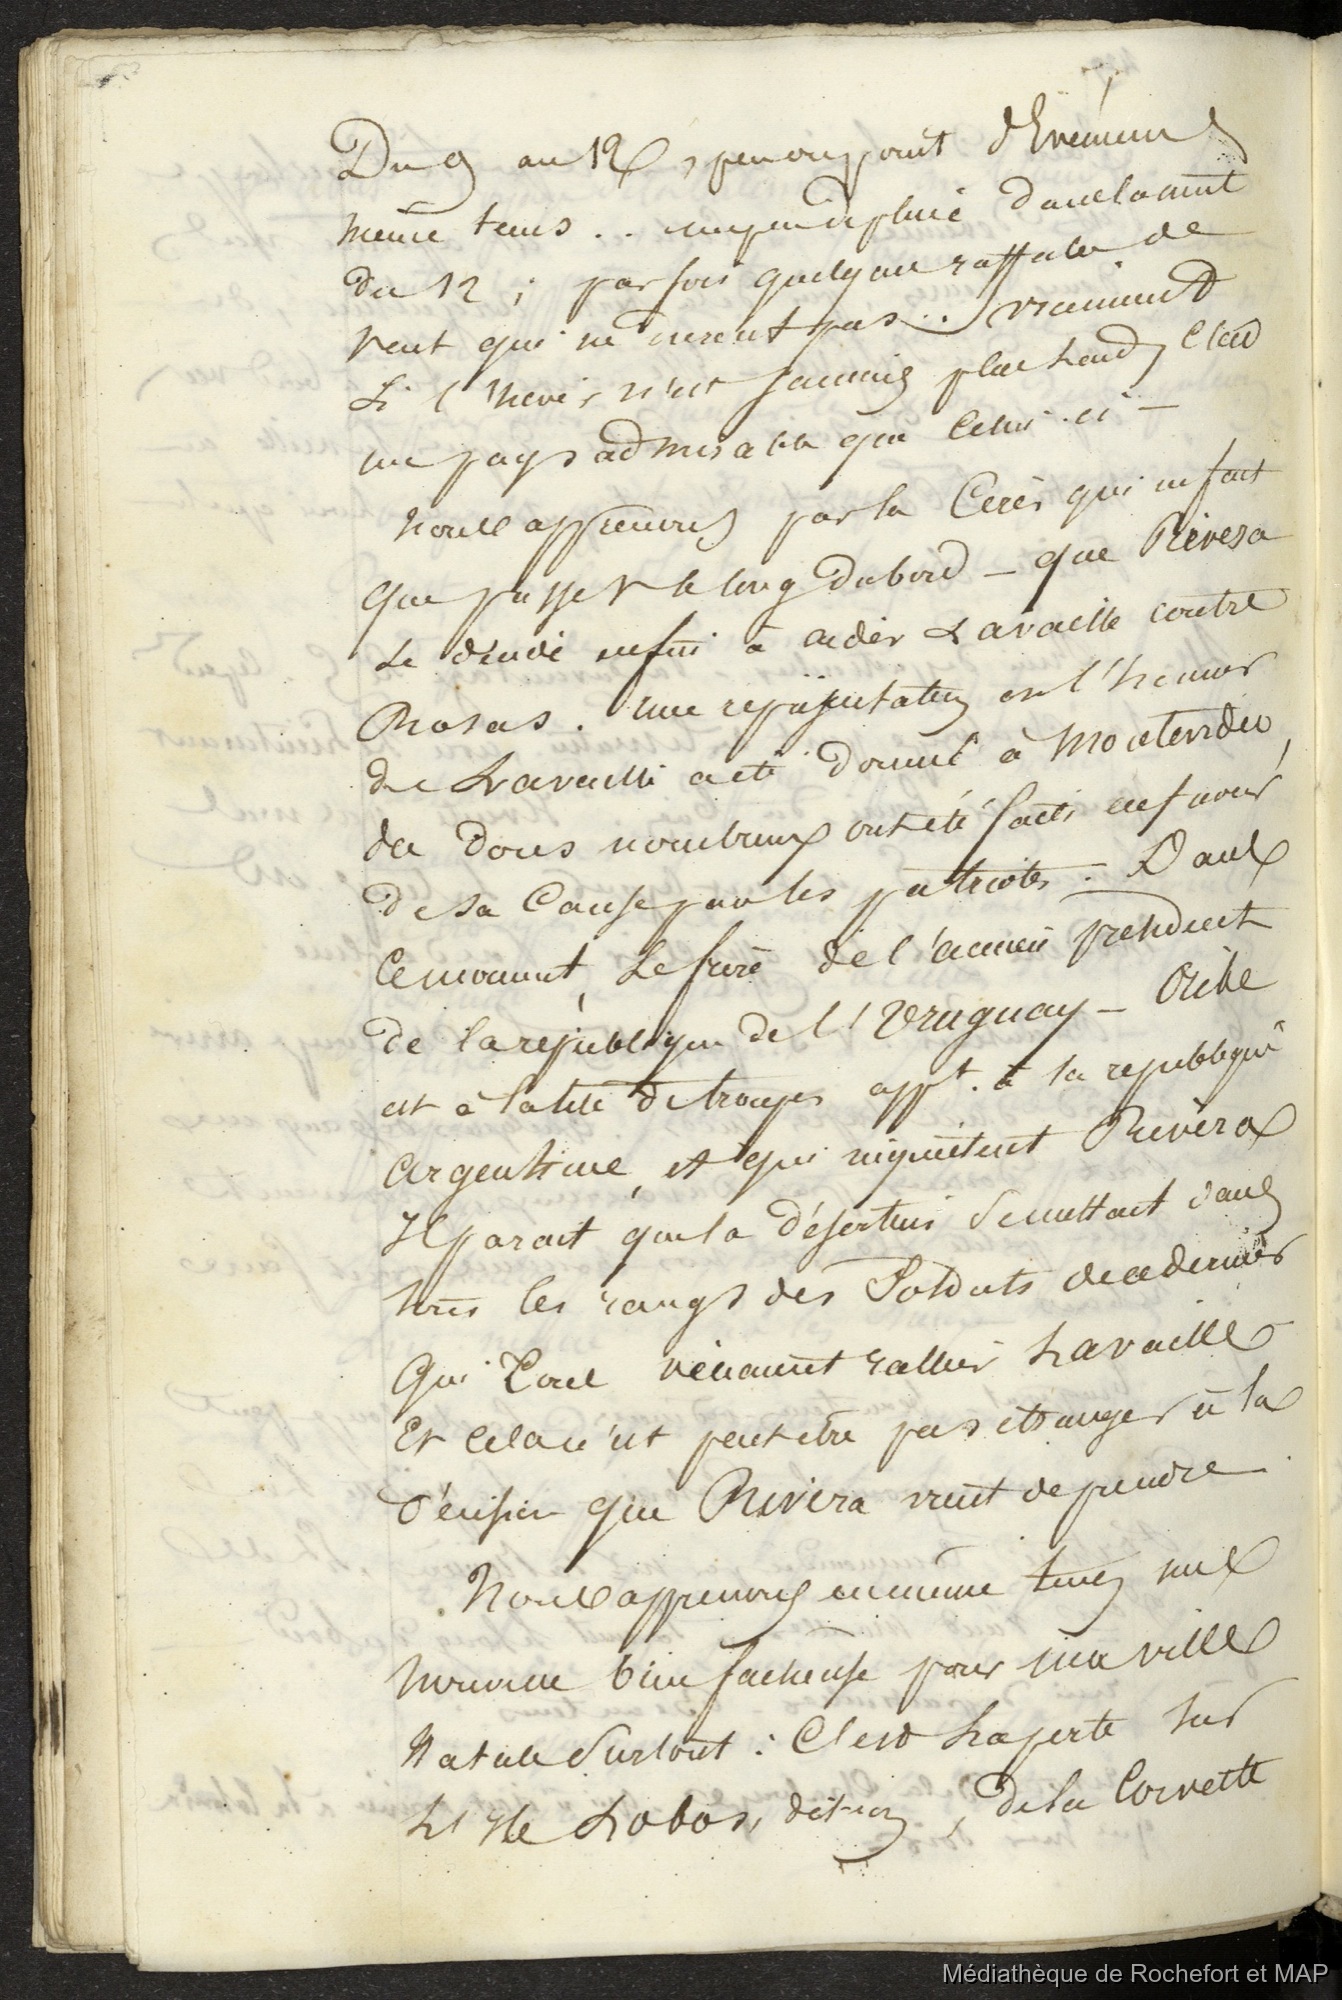 Du 9 au 12, peu ou point d'Evénemens
même tems .. un peu de pluie dans la nuit
du 12 ; parfois quelques raffales de
vent qui ne durent pas .. vraiment
Si l'hiver n'est jamais plus chaud, c'est
un pays admirable que celui-ci —
Nous apprenons par la Cérès qui ne fait
que passer le long du bord — que Rivera
se décide enfin à aider Lavaille contre
Rosas. Une représentation en l'honneur
de Lavaille a été donnée à Montevideo,
des dons nombreux ont été faits en faveur
de sa Cause par les patriotes. — Dans
ce moment, le frère de l'ancien président
de la république de l'Uruguay — Oribe
est à la tête de troupes appt. à la republique
argentine, et qui inquiètent Rivera
Il parait que la désertion se mettait dans
tous les rangs des Soldats de ce dernier
qui tous venaient rallier Lavaille
Et cela n'est peut être pas étranger à la
décision que Rivera vient de prendre
Nous apprenons en même tems une
nouvelle bien facheuse pour ma ville
Natale Surtout : C'est la perte sur
L'Ile Lobos, dit-on, de la Corvette
Médiathèque de Rochefort et MAP